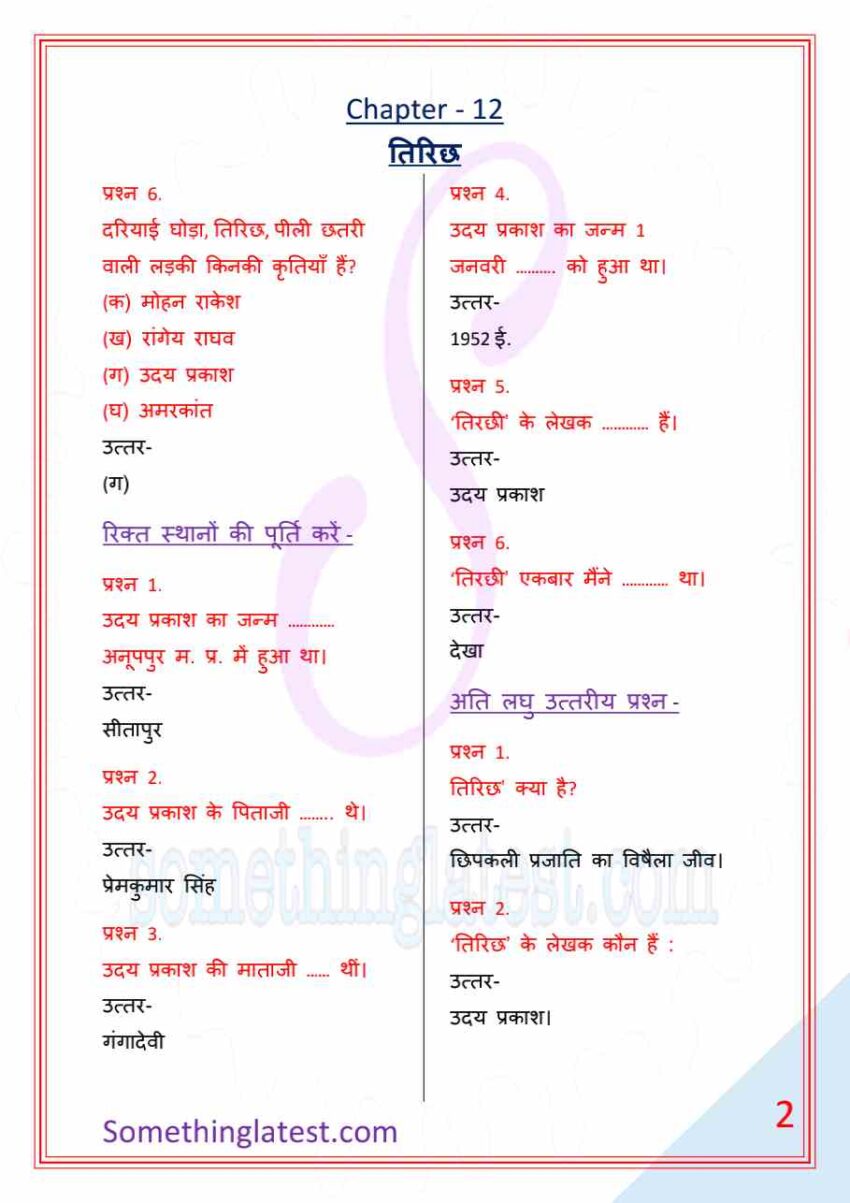 Chapter - 12
तिरिछ
प्रश्न 6.
दरियाई घोड़ा, तिरिछ, पीली छतरी
वाली लड़की किनकी कृतियाँ हैं?
(क) मोहन राकेश
(ख) रांगेय राघव
(ग) उदय प्रकाश
(घ) अमरकांत
उत्तर-
(ग)
रिक्त स्थानों की पूर्ति करें -
प्रश्न 1.
उदय प्रकाश का जन्म …………
अनूपपुर म. प्र. में हुआ था।
उत्तर-
सीतापुर
प्रश्न 2.
उदय प्रकाश के पिताजी …….. थे।
उत्तर-
प्रेमकुमार सिंह
प्रश्न 3.
उदय प्रकाश की माताजी …… थीं।
उत्तर-
गंगादेवी
प्रश्न 4.
उदय प्रकाश का जन्म 1
जनवरी ………. को हुआ था।
उत्तर-
1952 ई.
प्रश्न 5.
‘तिरछी’ के लेखक ………… हैं।
उत्तर-
उदय प्रकाश
प्रश्न 6.
‘तिरछी’ एकबार मैंने ………… था।
उत्तर-
देखा
अति लघु उत्तरीय प्रश्न -
प्रश्न 1.
तिरिछ’ क्या है?
उत्तर-
छिपकली प्रजाति का विषैला जीव।
प्रश्न 2.
‘तिरिछ’ के लेखक कौन हैं :
उत्तर-
उदय प्रकाश।
somethinglatest.com
Somethinglatest.com
2